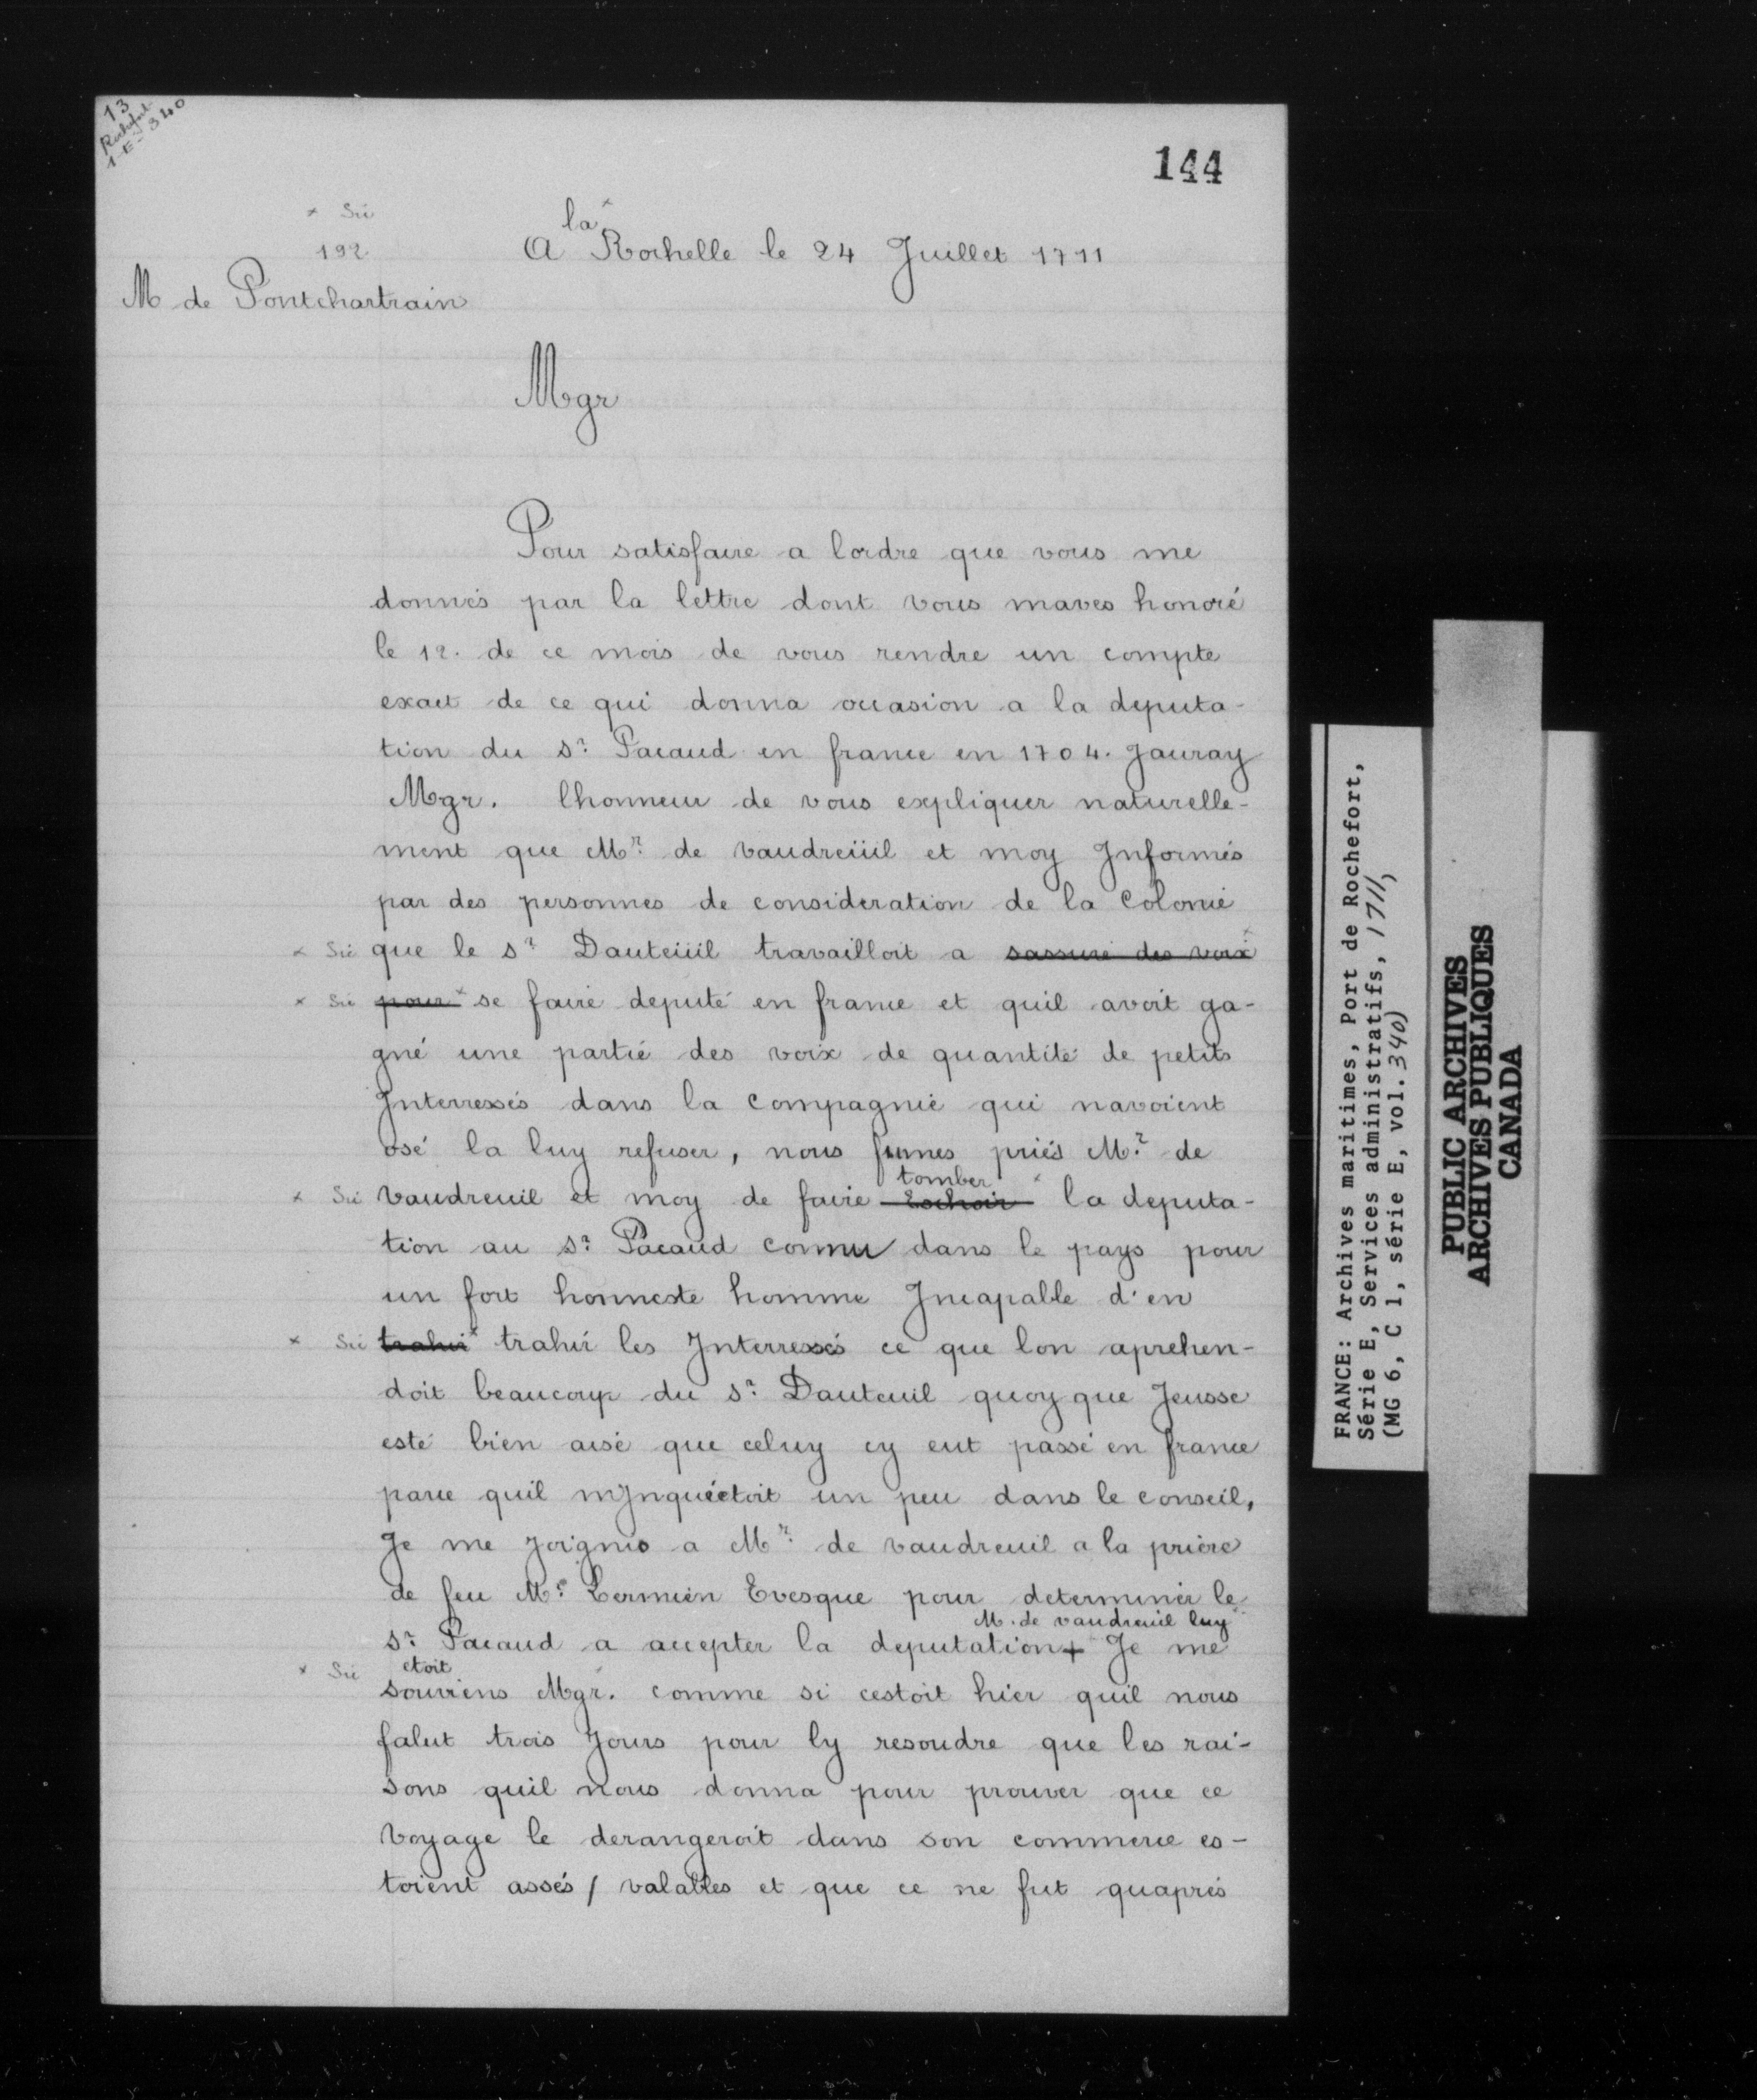 13
Rochefort
1-E-340
144
x Sic
192
A la x Rochelle le 24 Juillet 1711
M de Pontchartrain
Mgr
Pour satisfaire a lordre que vous me
donnés par la lettre dont vous maves honoré
le 12. de ce mois de vous rendre un compte
exact de ce qui donna occasion a la deputa-
tion du Sr. Pacaud en france en 1704. Jauray
Mgr. lhonneur de vous expliquer naturelle-
ment que Mr. de Vaudreüil et moy Informés
par des personnes de consideration de la Colonie
x Sic que le Sr. Dauteüil travailloit a sassure des voix x
x Sic pour x se faire deputé en france et quil avoit ga-
gné une partie des voix de quantité de petits
Interressés dans la Compagnie qui navoient
osé la luy refuser, nous fumes priés Mr. de
tomber
x Sic Vaudreuil et moy de faire Eschoir x la deputa-
tion au Sr. Pacaud connu dans le pays pour
un fort honneste homme Incapable d'en
x Sic trahir x trahir les Interressés ce que lon aprehen-
doit beaucoup du Sr. Dauteuil quoy que Jeusse
esté bien aisé que celuy cy eut passé en france
parce quil mInquiétoit un peu dans le conseil,
Je me Joignis a Mr. de vaudreuil a la priere
de feu Mr. Lermien Evesque pour determiner le
M. de vaudreuil luy
Sr. Pacaud a accepter la deputation + Je me
x Sic etoit
souviens Mgr. comme si cestoit hier quil nous
falut trois Jours pour ly resoudre que les rai-
sons quil nous donna pour prouver que ce
Voyage le derangeroit dans son commerce es-
toient assés / valables et que ce ne fut quaprés
FRANCE: Archives maritimes, Port de Rochefort,
Série E, Services administratifs, 1711,
(MG 6, C 1, série E, vol. 340)
PUBLIC ARCHIVES
ARCHIVES PUBLIQUES
CANADA